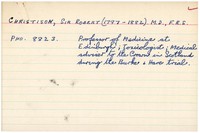 CHRISTISON, Sir Robert (1797-1882) M.D., F.R.S.
PHO. 8823. Professor of Medicine at
Edinburgh, Toxicologist, Medical
adviser to the Crown in Scotland
during the Burke & Hare trial.